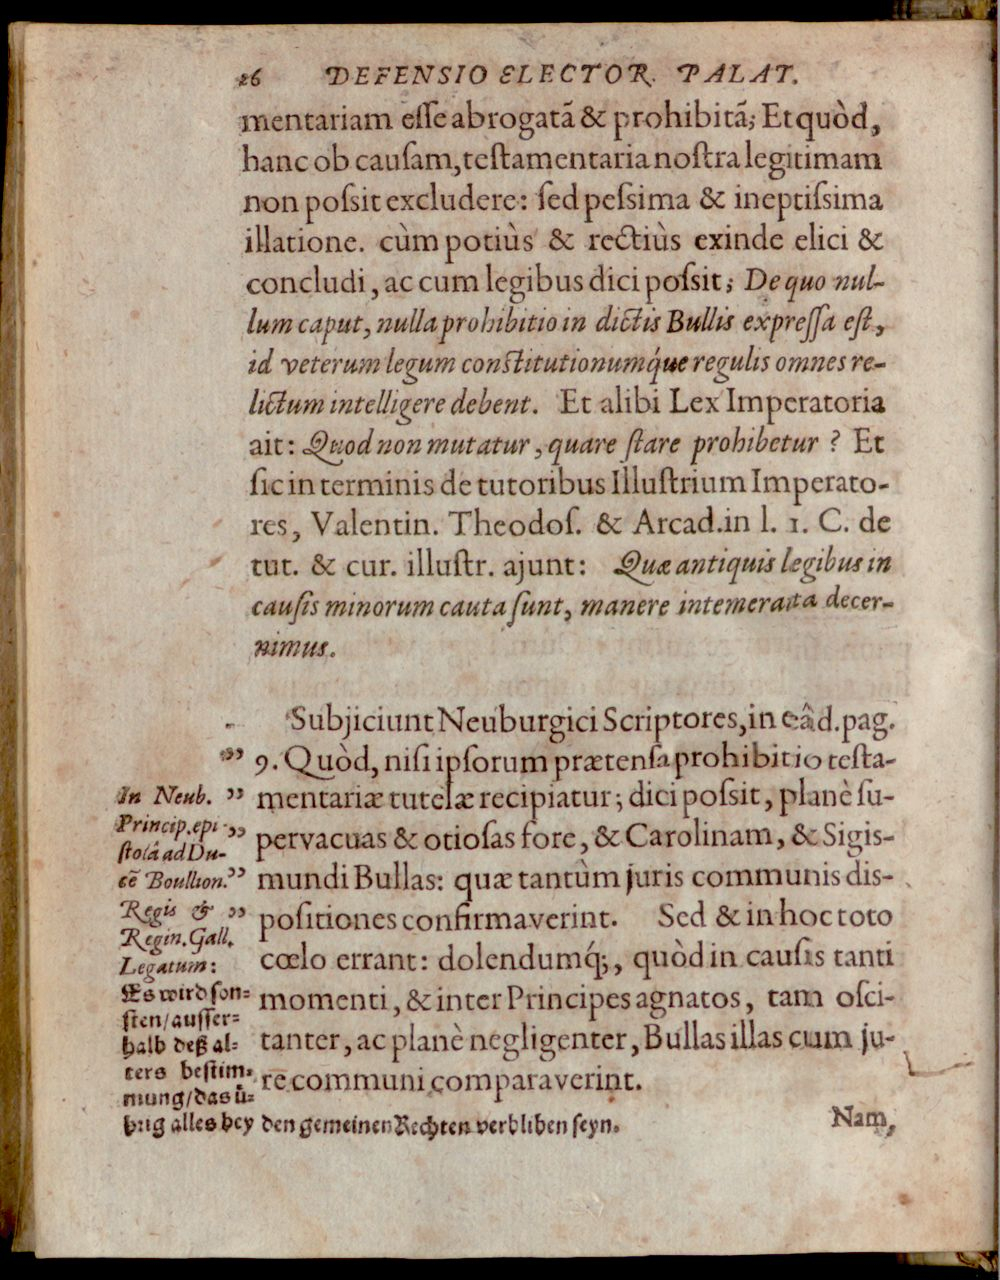 26 DEFENSIO ELECTOR. PALAT.
mentariam esse abrogatã & prohibitã; Et quòd,
hanc ob causam, testamentaria nostra legitimam
non possit excludere: sed pessima & ineptissima
illatione. cùm potiùs & rectiùs exinde elici &
concludi, ac cum legibus dici possit; De quo nul-
lum caput, nulla prohibitio in dictis Bullis expressa est,
id veterum legum constitutionumq́ue regulis omnes re-
lictum intelligere debent. Et alibi Lex Imperatoria
ait: Quod non mutatur, quare stare prohibetur? Et
sic in terminis de tutoribus Illustrium Imperato-
res, Valentin. Theodos. & Arcad. in l. 1. C. de
tut. & cur. illustr. ajunt: Quæ antiquis legibus in
causis minorum cauta sunt, manere intemerata decer-
nimus.
Subjiciunt Neuburgici Scriptores, in eâd. pag.
„ 9. Quòd, nisi ipsorum prætensa prohibitio testa-
„ mentariæ tutelæ recipiatur; dici possit, planè su-
„ pervacuas & otiosas fore, & Carolinam, & Sigis-
„ mundi Bullas: quæ tantùm juris communis dis-
„ positiones confirmaverint. Sed & in hoc toto
cœlo errant: dolendumq́;, quòd in causis tanti
momenti, & inter Principes agnatos, tam osci-
tanter, ac planè negligenter, Bullas illas cum ju-
re communi comparaverint.
In Neub.
Princip. epi-
stolâ ad Du-
cẽ Boullion.
Regis &
Regin. Gall.
Legatum:
Es wird son-
sten/ausser-
halb deß al-
ters bestim-
mung/das ü-
brig alles bey den gemeinen Rechten verbliben seyn.
Nam,